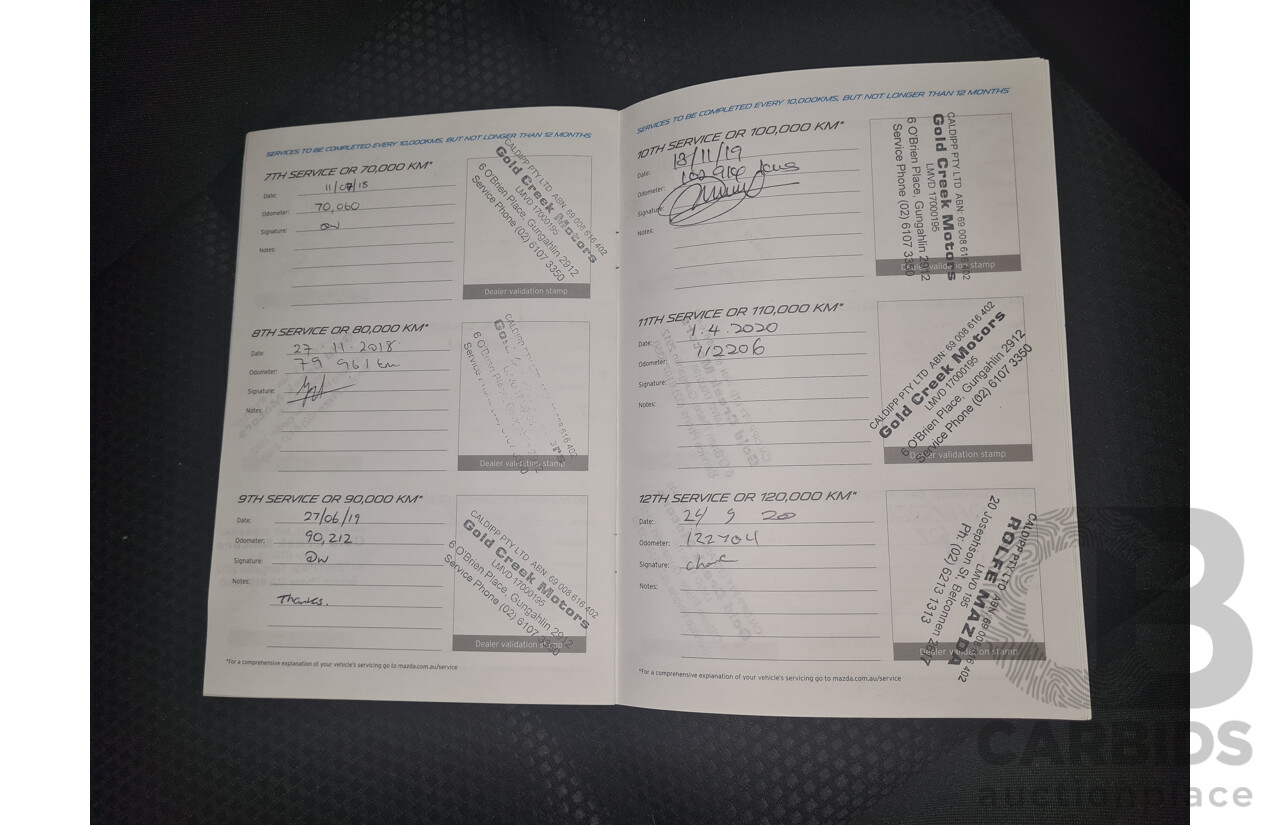 SERVICES TO BE COMPLETED EVERY 10,000KMS, BUT NOT LONGER THAN 12 MONTHS
7TH SERVICE OR 70,000 KM*
Date: 11/07/18
Odometer: 70,060
Signature:
Notes:
CALDIPP PTY LTD ABN: 69 008 616 402
Gold Creek Motors
LMVD 17000195
6 O'Brien Place, Gungahlin 2912
Service Phone (02) 6107 3350
Dealer validation stamp
8TH SERVICE OR 80,000 KM*
Date: 27 . 11 . 2018
Odometer: 79 961 km
Signature:
Notes:
CALDIPP PTY LTD 616 402
Dealer validation stamp
9TH SERVICE OR 90,000 KM*
Date: 27/06/19
Odometer: 90,212
Signature:
Notes:
Thanks.
CALDIPP PTY LTD ABN: 69 008 616 402
Gold Creek Motors
LMVD 17000195
6 O'Brien Place, Gungahlin 2912
Service Phone (02) 6107 3350
Dealer validation stamp
*For a comprehensive explanation of your vehicle's servicing go to mazda.com.au/service
SERVICES TO BE COMPLETED EVERY 10,000KMS, BUT NOT LONGER THAN 12 MONTHS
10TH SERVICE OR 100,000 KM*
Date: 13/11/19
Odometer:
Signature:
Notes:
CALDIPP PTY LTD ABN: 69 008 616 402
Gold Creek Motors
LMVD 17000195
6 O'Brien Place, Gungahlin 2912
Service Phone (02) 6107 3350
Dealer validation stamp
11TH SERVICE OR 110,000 KM*
Date: 1.4.2020
Odometer: 112206
Signature:
Notes:
CALDIPP PTY LTD ABN: 69 008 616 402
Gold Creek Motors
LMVD 17000195
6 O'Brien Place, Gungahlin 2912
Service Phone (02) 6107 3350
Dealer validation stamp
12TH SERVICE OR 120,000 KM*
Date: 24 9 20
Odometer: 122704
Signature:
Notes:
CALDIPP PTY LTD ABN: 69 008 616 402
ROLFE MAZDA
LMVD 195
20 Josephson St, Belconnen 2617
Ph: (02) 6213 1313
Dealer validation stamp
*For a comprehensive explanation of your vehicle's servicing go to mazda.com.au/service
CARBIDS
auctionplace